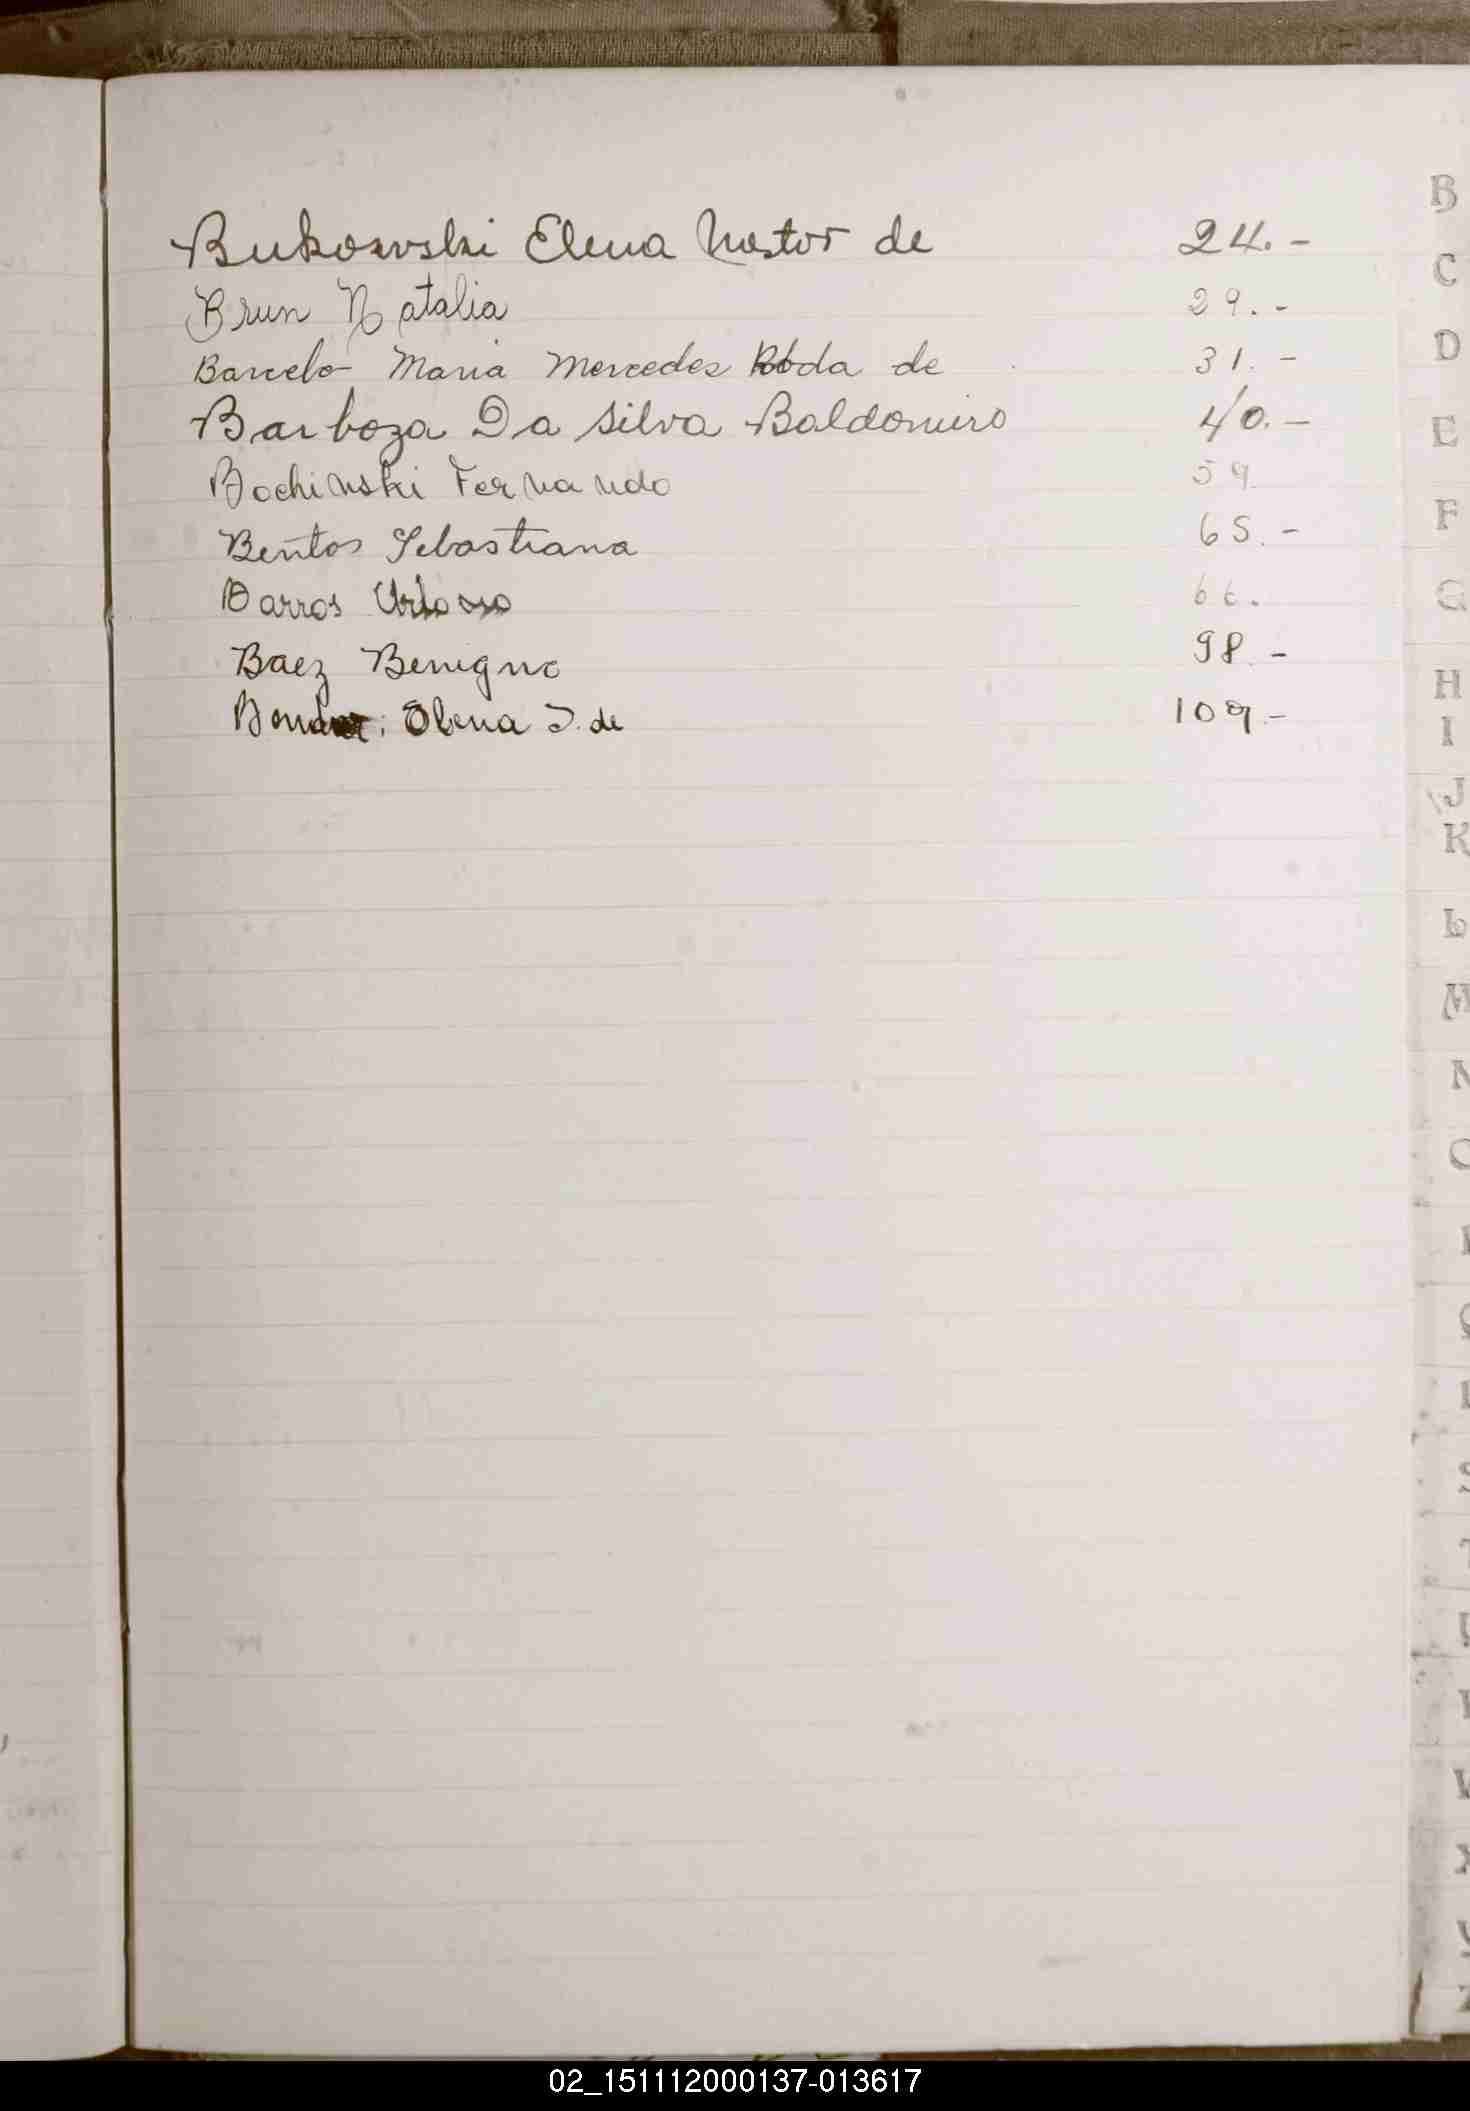 Bukowski Elena Nestor de 24.-
Brun Natalia 29.-
Barcelo Maria Mercedes Roda de 31.-
Barboza Da Silva Baldomiro 40.-
Bochinski Fernando 59
Bentos Sebastiana 65.-
Barros 66.
Baez Benigno 98.-
Olena I. de 109.-
B
C
D
E
F
G
H
I
J
K
L
M
N
O
S
X
02_151112000137-013617